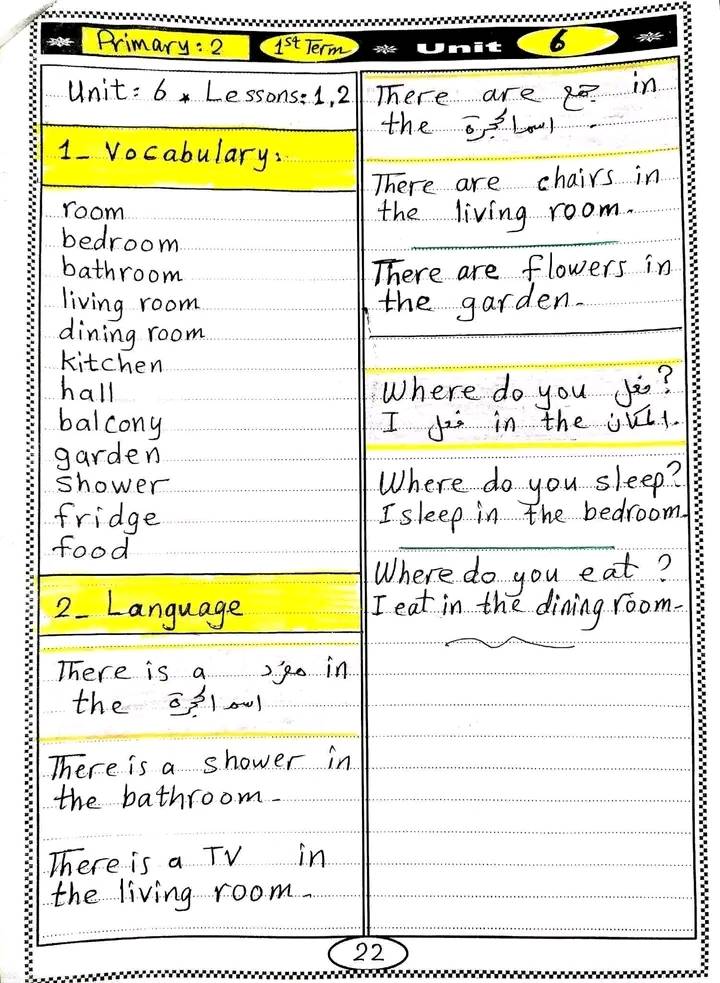 Primary: 2 1st Term Unit 6
Unit: 6 * Lessons: 1,2
1- Vocabulary:
room
bedroom
bathroom
living room
dining room
kitchen
hall
balcony
garden
shower
fridge
food
2- Language
There is a مفرد in
the اسم الحجرة
There is a shower in
the bathroom.
There is a TV in
the living room.
There are جمع in
the اسم الحجرة.
There are chairs in
the living room.
There are flowers in
the garden.
Where do you فعل?
I فعل in the المكان.
Where do you sleep?
I sleep in the bedroom.
Where do you eat?
I eat in the dining room.
22